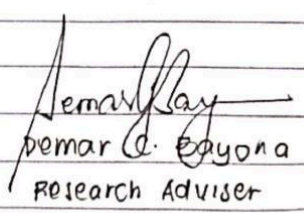 Demar C. Bayona
Research Adviser